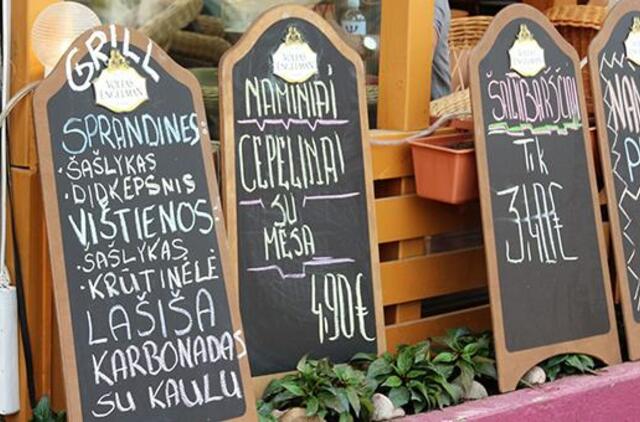 GRILL
VOLFAS ENGELMAN
SPRANDINĖS:
· ŠAŠLYKAS
· DIDKEPSNIS
VIŠTIENOS:
· ŠAŠLYKAS
· KRŪTINĖLĖ
LAŠIŠA
KARBONADAS
SU KAULU
VOLFAS ENGELMAN
NAMINIAI
CEPELINAI
SU
MĖSA
4,90€
VOLFAS ENGELMAN
ŠALTIBARŠČIAI
Tik
3,40€